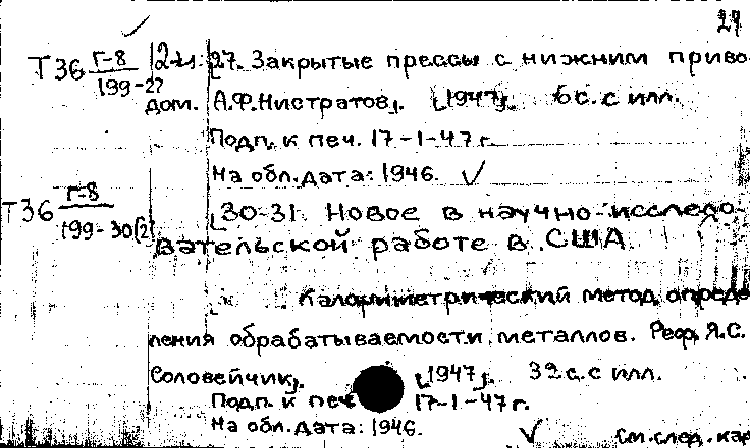 27
Т36 Г-8 2-ы: [27. Закрытые прессы с нижним приво
199-27
дом. А.Ф.Нистратов]. [1947]. 6 с. с илл.
Подп. к печ. 17-1-47 г.
На обл. дата: 1946. ✓
Т36 Г-8 [30-31. Новое в научно-исследо-
199-30(2)
вательской работе в США.
Калориметрический метод опреде
ления обрабатываемости металлов. Реф. Я.С.
Соловейчик]. [1947]. 32 с. с илл.
Подп. к печ 17-1-47 г.
На обл. дата: 1946. ✓
См. след. кар